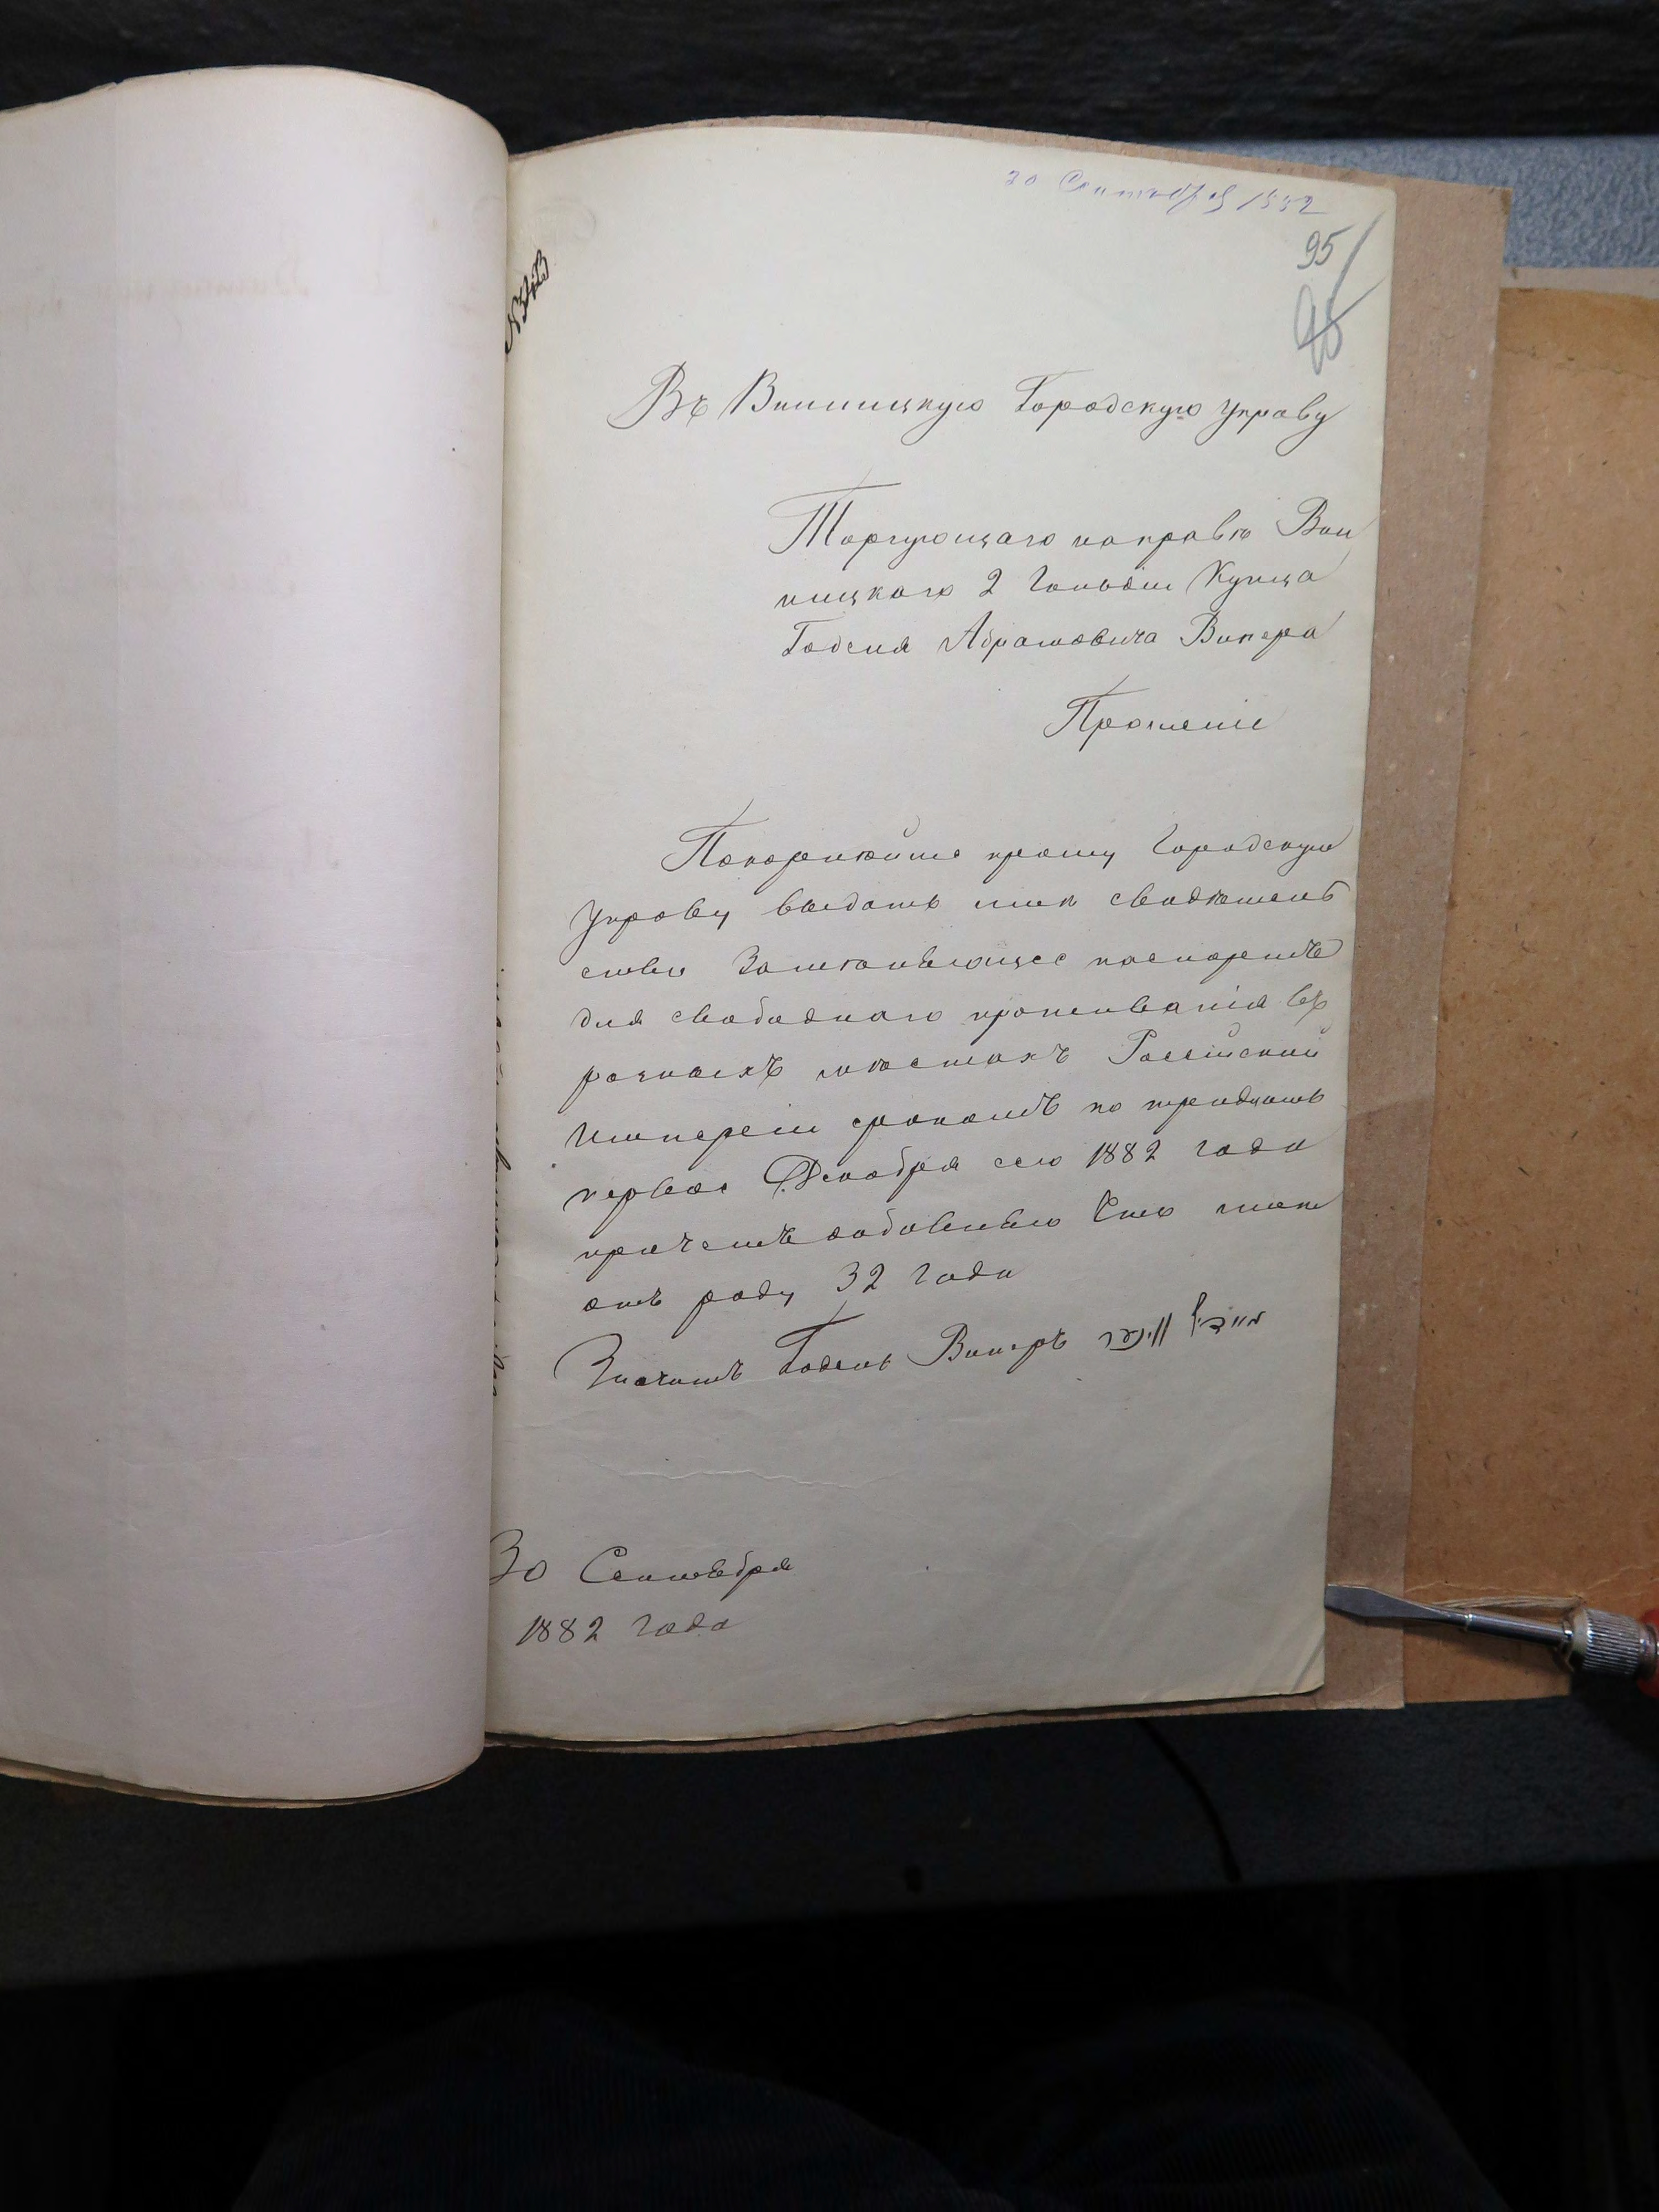 30 Сентября 1882
95
95
Въ Винницкую Городскую Управу
Торгующаго направѣ Вин
ницкаго 2 Гильдіи Купца
Годеля Абрамовича Винера
Прошеніе
Покорнѣйше прошу Городскую
Управу выдать мнѣ свидѣтель
ство Замѣняющее паспортъ
для свободнаго проживанія въ
разныхъ мѣстахъ Россійской
Имперіи срокомъ по тридцать
первое Декабря сего 1882 года
причемъ объясняю Что мнѣ
отъ роду 32 года
Годель Винеръ
30 Сентября
1882 года